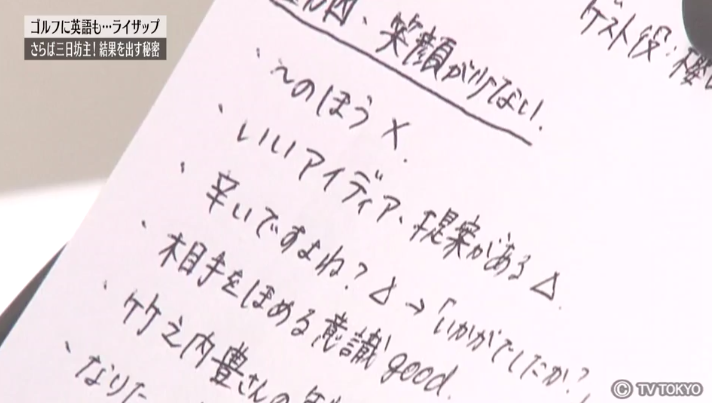 ゴルフに英語も…ライザップ
さらば三日坊主！結果を出す秘密
ゲスト役：櫻
内、笑顔が少ない.
・〜のほう ×.
・いいアイディア、提案がある △.
・辛いですよね？△→「いかがでしたか？」
・相手をほめる意識 good.
・竹之内豊さんの
・なりた
© TV TOKYO